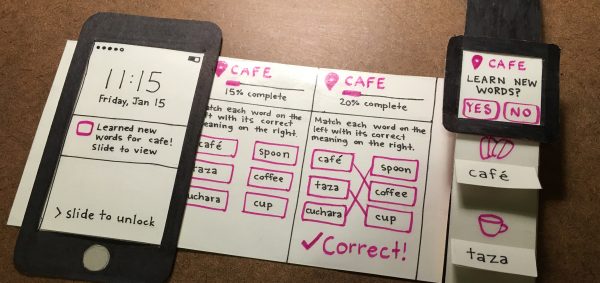 11:15
Friday, Jan 15
Learned new
words for cafe!
Slide to view
> slide to unlock
CAFE
15% complete
Match each word on the
left with its correct
meaning on the right.
café spoon
taza coffee
cuchara cup
CAFE
20% complete
Match each word on the
left with its correct
meaning on the right.
café spoon
taza coffee
cuchara cup
✓Correct!
CAFE
LEARN NEW
WORDS?
YES NO
café
taza